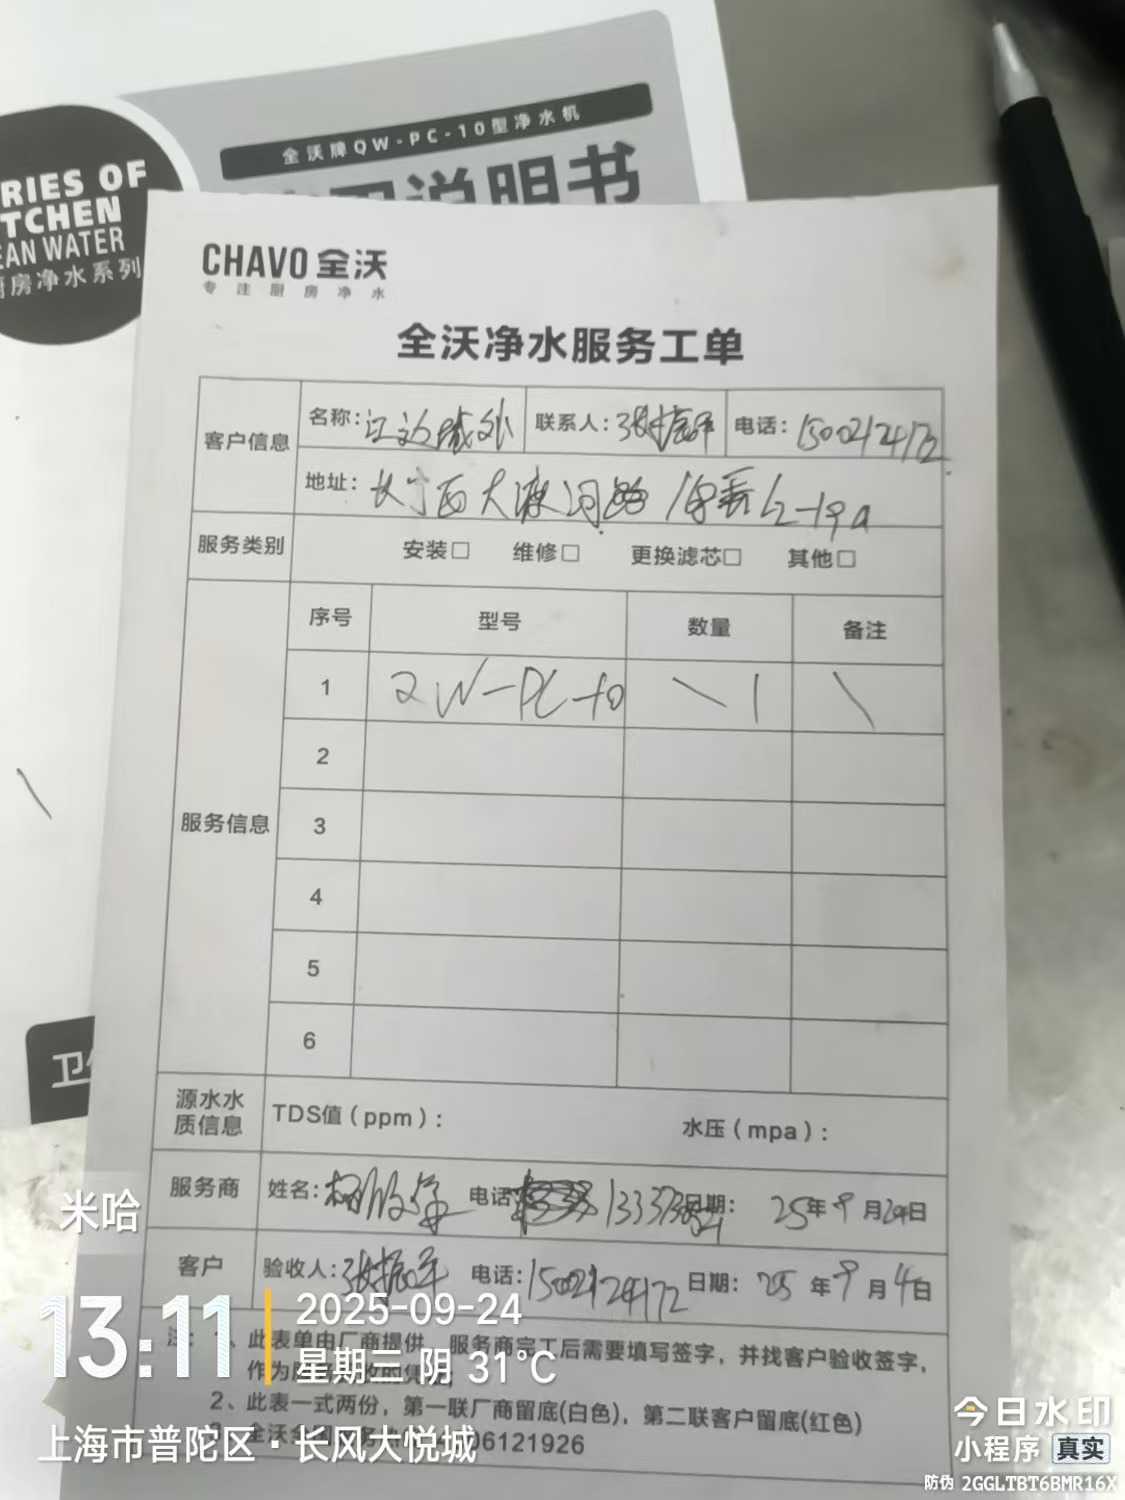 RIES OF
TCHEN
EAN WATER
厨房净水系列
全沃牌QW-PC-10型净水机
说明书
CHAVO 全沃
专注厨房净水
全沃净水服务工单
客户信息 名称: 江边城外 联系人: 张振平 电话: 15002124172
地址: 长宁西大渡河路 12-19a
服务类别 安装□ 维修□ 更换滤芯□ 其他□
服务信息
序号 型号 数量 备注
1 QW-PC-10 \ 1 \
2
3
4
5
6
源水水质信息 TDS值(ppm): 水压(mpa):
服务商 姓名: 电话: 日期: 25年9月24日
客户 验收人: 张振平 电话: 15002124172 日期: 25年9月4日
注: 1、此表单由厂商提供,服务商完工后需要填写签字,并找客户验收签字,
作为的凭
2、此表一式两份,第一联厂商留底(白色),第二联客户留底(红色)
全沃全 06121926
卫
米哈
13:11
2025-09-24
星期三 阴 31℃
上海市普陀区·长风大悦城
今日水印
小程序 真实
防伪 2GGLTBT6BMR16X